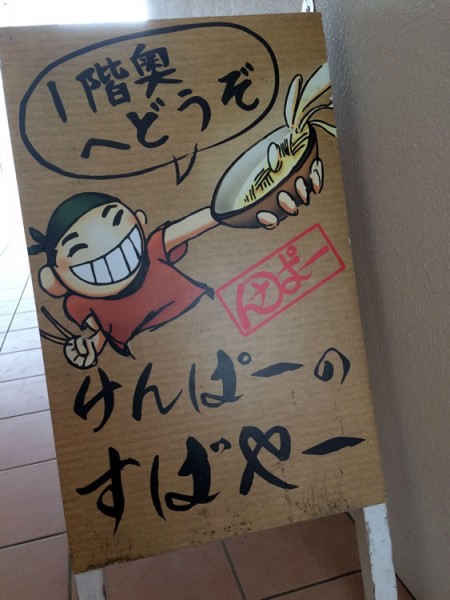 1階奥
へどうぞ
んぱー
けんぱーの
すばやー